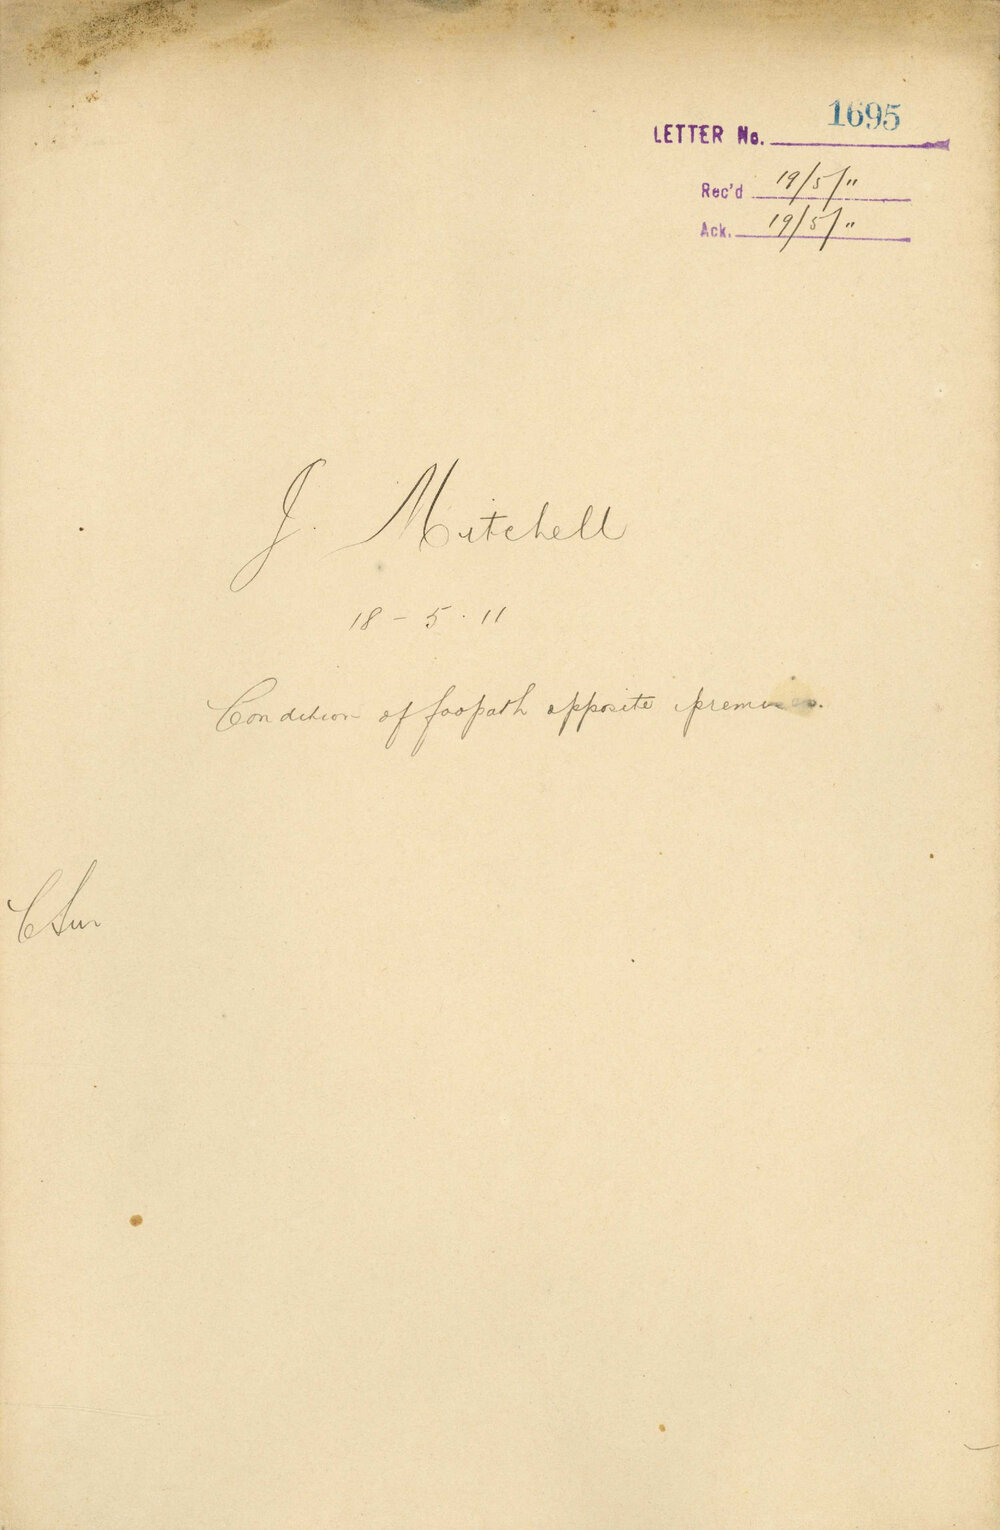 LETTER No. 1695
Rec'd 19/5/"
Ack. 19/5/"
J. Mitchell
18 - 5 . 11
Condition of foopath opposite premises.
C Sur